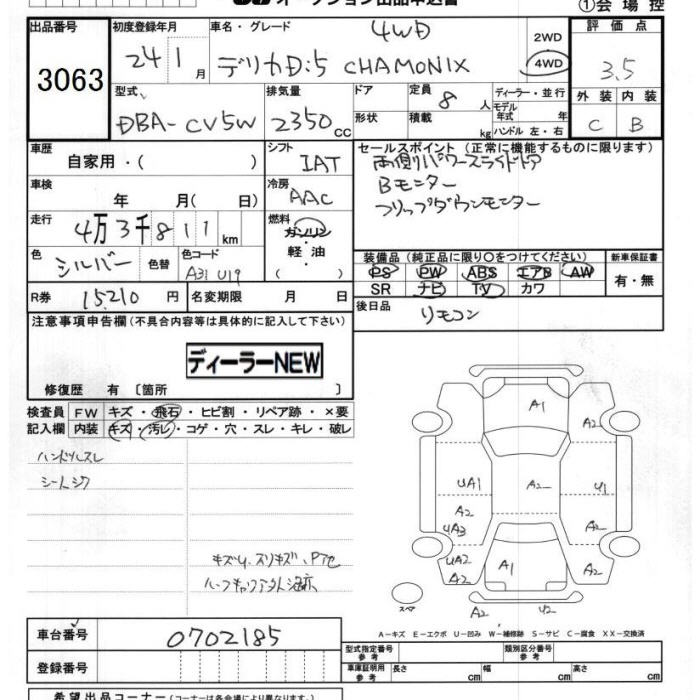 オークション出品申込書
①会場控
出品番号
3063
初度登録年月
24 1月
車名・グレード
4WD
デリカD:5 CHAMONIX
2WD
4WD
評価点
3.5
外装 内装
C B
型式
DBA-CV5W
排気量
2350cc
ドア
形状
定員 8人
積載 kg
ディーラー・並行
モデル年式 年
ハンドル 左・右
車歴
自家用・( )
シフト
IAT
冷房
AAC
車検
年 月( 日)
走行
4万3千811km
燃料
ガソリン
軽油
( )
色
シルバー
色替
色コード
A31 U19
R券 15,210円
名変期限 月 日
セールスポイント(正常に機能するものに限ります)
両側パワースライドドア
Bモニター
フリップダウンモニター
装備品(純正品に限り○をつけてください)
新車保証書
PS PW ABS エアB AW
有・無
SR ナビ TV カワ
後日品
リモコン
注意事項申告欄(不具合内容等は具体的に記入して下さい)
ディーラーNEW
修復歴 有〔箇所 〕
検査員 FW キズ・飛石・ヒビ割・リペア跡・×要
記入欄 内装 キズ・汚レ・コゲ・穴・スレ・キレ・破レ
ハンドルスレ
シートシワ
キズU、スリキズ、P他
A1
A2
UA1 A2 U1
A2
UA3 A2
UA2
A2 A1 A2
スペア
A2 U2
A-キズ E-エクボ U-凹み W-補修跡 S-サビ C-腐食 XX-交換済
車台番号 0702185
型式指定番号 類別区分番号
登録番号
車庫証明用参考 長さ cm 幅 cm 高さ cm
希望出品コーナー(コーナーは各会場により異なります。)